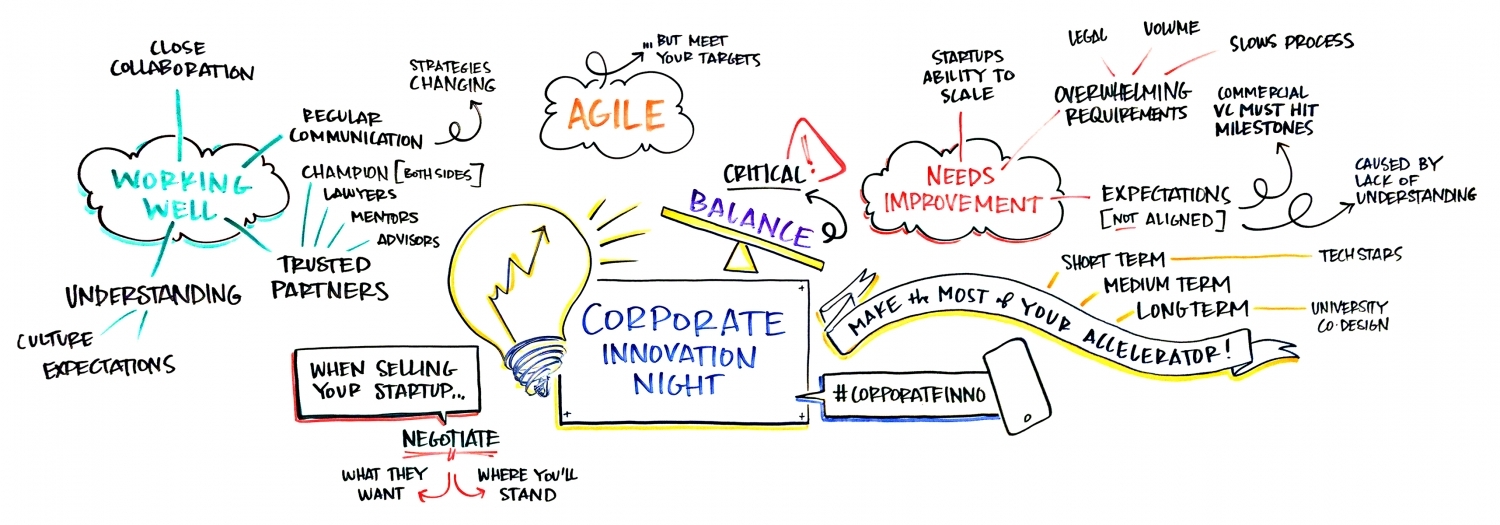 CLOSE
COLLABORATION
STRATEGIES
CHANGING
REGULAR
COMMUNICATION
WORKING
WELL
CHAMPION [BOTH SIDES]
LAWYERS
MENTORS
ADVISORS
TRUSTED
PARTNERS
UNDERSTANDING
CULTURE
EXPECTATIONS
... BUT MEET
YOUR TARGETS
AGILE
CRITICAL
!
BALANCE
CORPORATE
INNOVATION
NIGHT
WHEN SELLING
YOUR STARTUP...
NEGOTIATE
WHAT THEY
WANT
WHERE YOU'LL
STAND
STARTUPS
ABILITY TO
SCALE
LEGAL
VOLUME
SLOWS PROCESS
OVERWHELMING
REQUIREMENTS
COMMERCIAL
VC MUST HIT
MILESTONES
NEEDS
IMPROVEMENT
EXPECTATIONS
[NOT ALIGNED]
CAUSED BY
LACK OF
UNDERSTANDING
SHORT TERM
TECHSTARS
MEDIUM TERM
LONG TERM
UNIVERSITY
CO-DESIGN
MAKE the MOST of YOUR ACCELERATOR!
#CORPORATEINNO